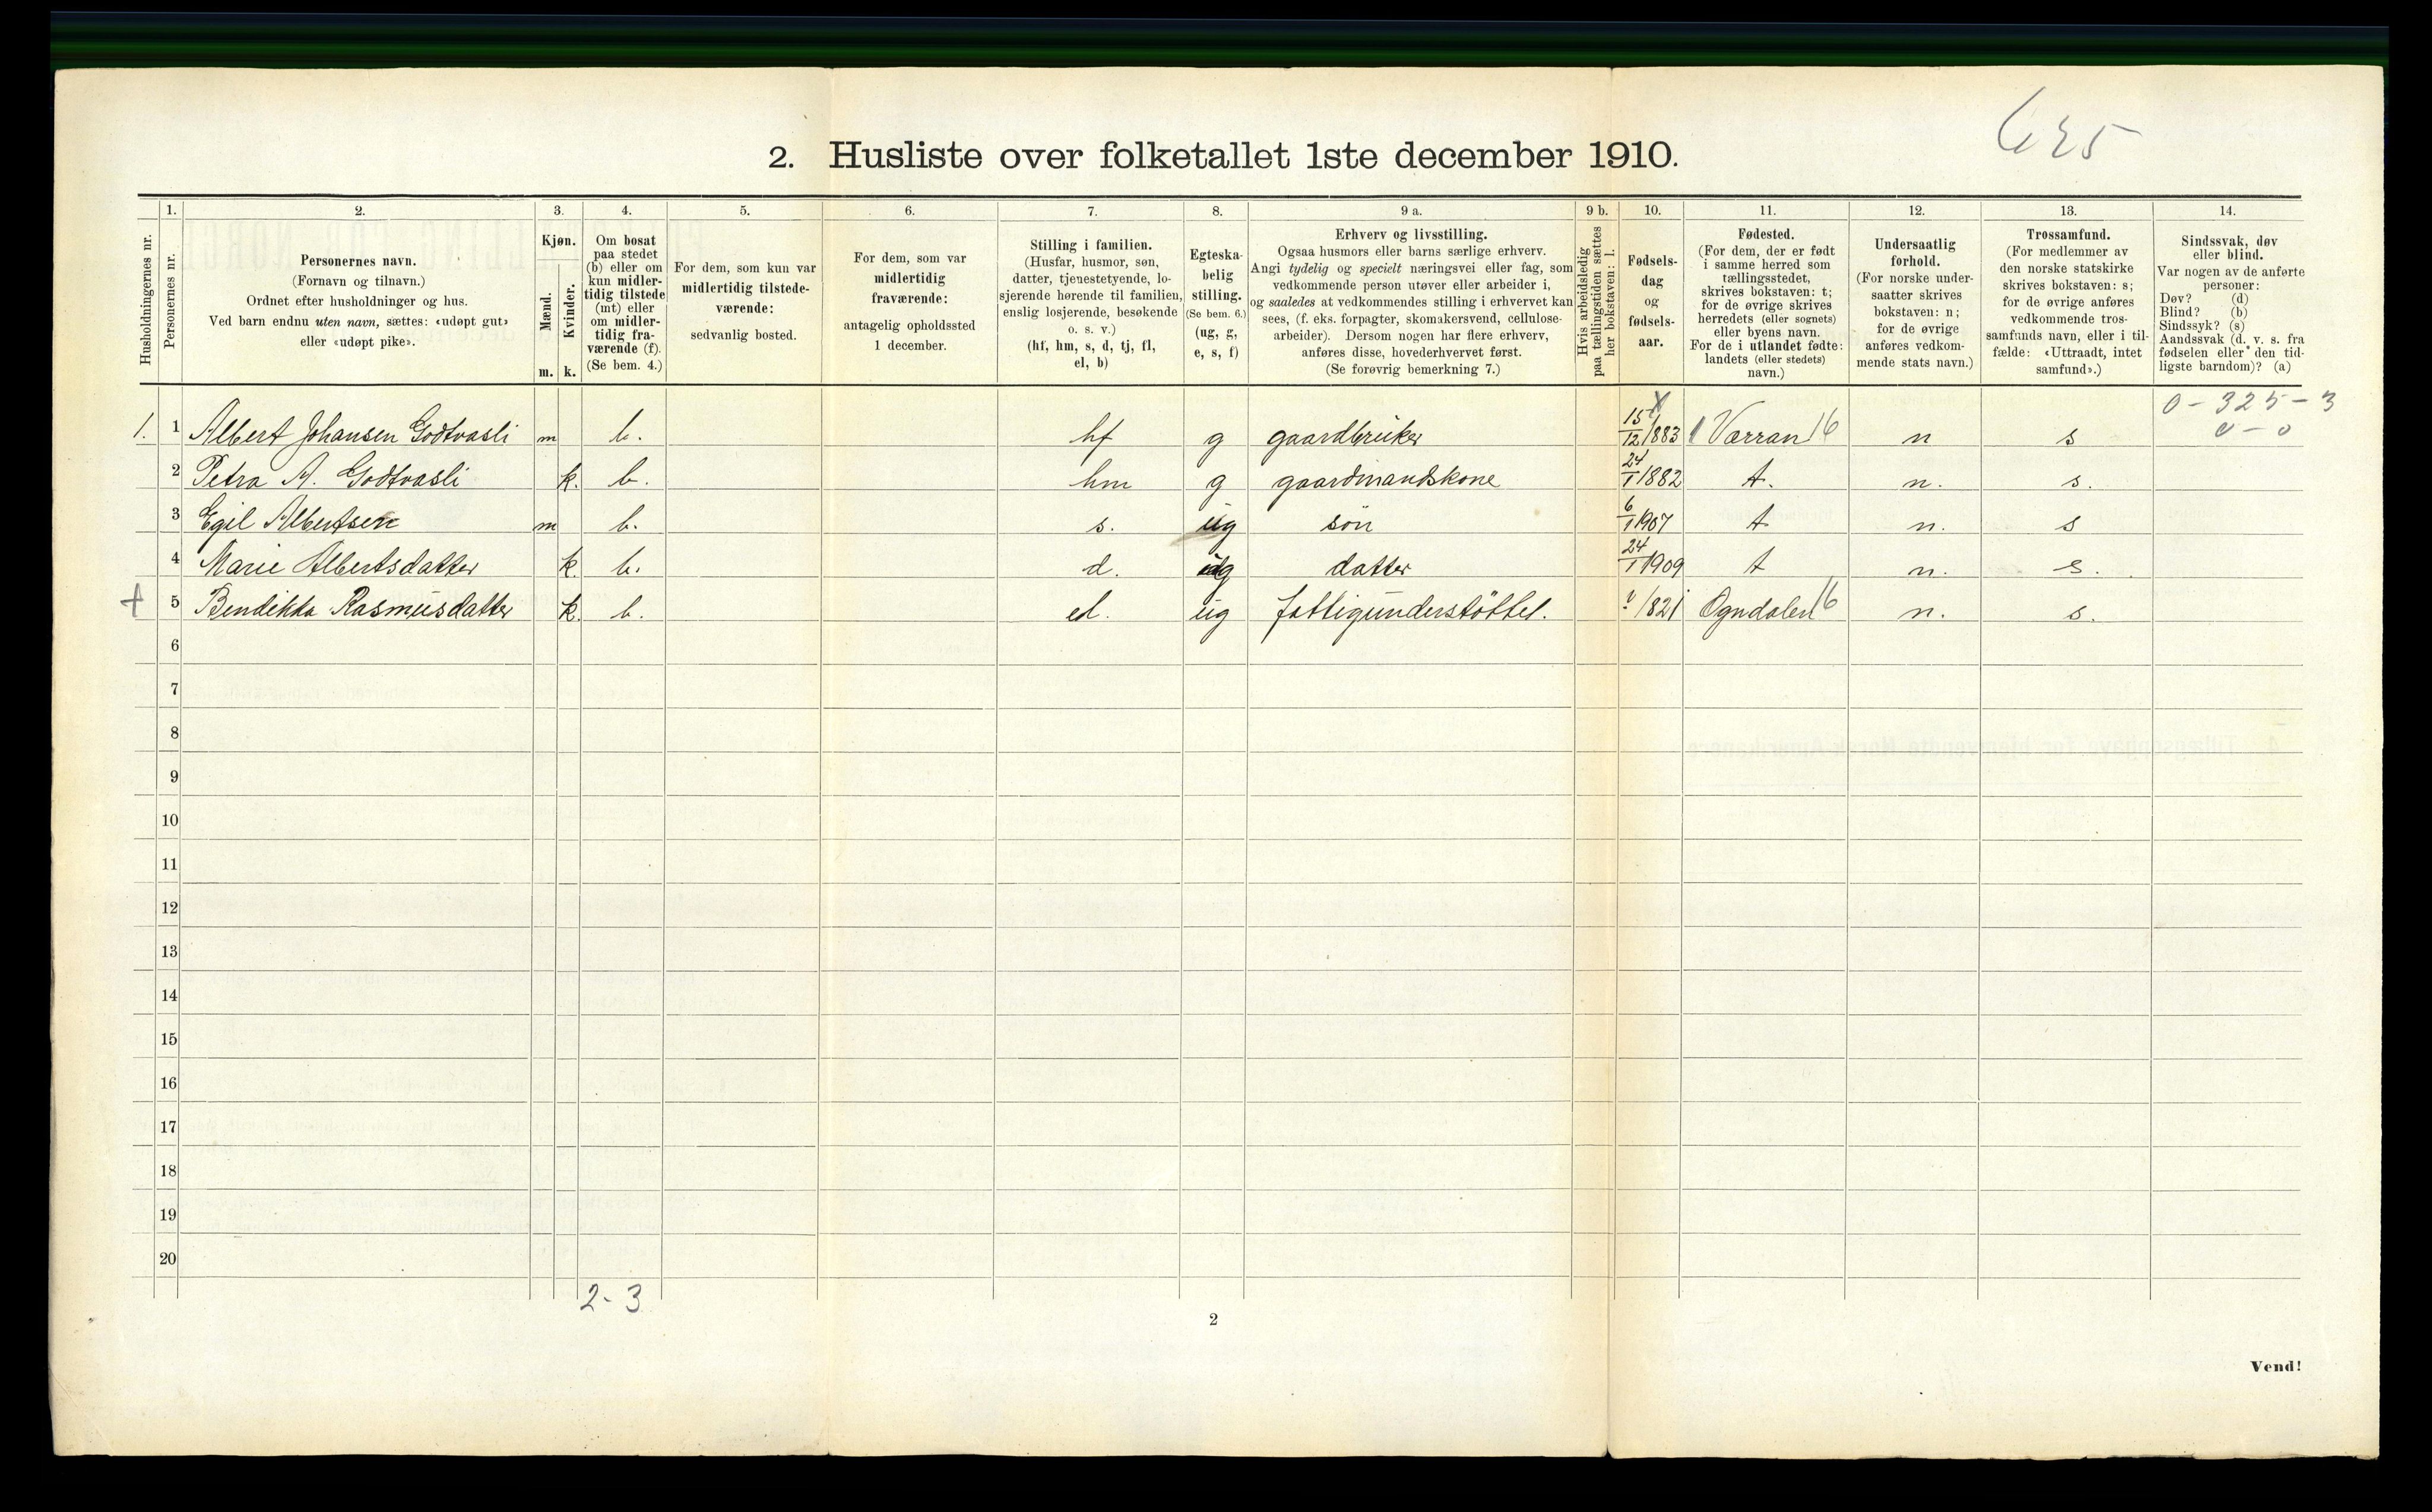 625
2. Husliste over folketallet 1ste december 1910.
Husholdningernes nr.
1. Personernes nr.
2. Personernes navn.
(Fornavn og tilnavn.)
Ordnet efter husholdninger og hus.
Ved barn endnu uten navn, sættes: «udøpt gut»
eller «udøpt pike».
3. Kjøn.
Mænd. m.
Kvinder. k.
4. Om bosat
paa stedet
(b) eller om
kun midler-
tidig tilstede
(mt) eller
om midler-
tidig fra-
værende (f).
(Se bem. 4.)
5. For dem, som kun var
midlertidig tilstede-
værende:
sedvanlig bosted.
6. For dem, som var
midlertidig
fraværende:
antagelig opholdssted
1 december.
7. Stilling i familien.
(Husfar, husmor, søn,
datter, tjenestetyende, lo-
sjerende hørende til familien,
enslig losjerende, besøkende
o. s. v.)
(hf, hm, s, d, tj, fl,
el, b)
8. Egteska-
belig
stilling.
(Se bem. 6.)
(ug, g,
e, s, f)
9 a. Erhverv og livsstilling.
Ogsaa husmors eller barns særlige erhverv.
Angi tydelig og specielt næringsvei eller fag, som
vedkommende person utøver eller arbeider i,
og saaledes at vedkommendes stilling i erhvervet kan
sees, (f. eks. forpagter, skomakersvend, cellulose-
arbeider). Dersom nogen har flere erhverv,
anføres disse, hovederhvervet først.
(Se forøvrig bemerkning 7.)
9 b. Hvis arbeidsledig
paa tællingstiden sættes
her bokstaven: l.
10. Fødsels-
dag
og
fødsels-
aar.
11. Fødested.
(For dem, der er født
i samme herred som
tællingsstedet,
skrives bokstaven: t;
for de øvrige skrives
herredets (eller sognets)
eller byens navn.
For de i utlandet fødte:
landets (eller stedets)
navn.)
12. Undersaatlig
forhold.
(For norske under-
saatter skrives
bokstaven: n;
for de øvrige
anføres vedkom-
mende stats navn.)
13. Trossamfund.
(For medlemmer av
den norske statskirke
skrives bokstaven: s;
for de øvrige anføres
vedkommende tros-
samfunds navn, eller i til-
fælde: «Uttraadt, intet
samfund».)
14. Sindssvak, døv
eller blind.
Var nogen av de anførte
personer:
Døv? (d)
Blind? (b)
Sindssyk? (s)
Aandssvak (d. v. s. fra
fødselen eller den tid-
ligste barndom)? (a)
0 - 325 - 3
0 - 0
1. 1 Albert Johansen Godtvasli m b. hf g gaardbruker 15/12 1883 Værran 16 n s
2 Petra A. Godtvasli k. b. hm g gaardmandskone 24/1 1882 t. n. s.
3 Egil Albertsen m b. s. ug søn 6/1 1907 t n. s
4 Marie Albertsdatter k. b. d. ug datter 24/1 1909 t n. s.
+ 5 Bendikka Rasmusdatter k. b. el. ug fattigunderstøttet. /821 Ogndalen 16 n. s.
6
7
8
9
10
11
12
13
14
15
16
17
18
19
20
2 - 3
2
Vend!